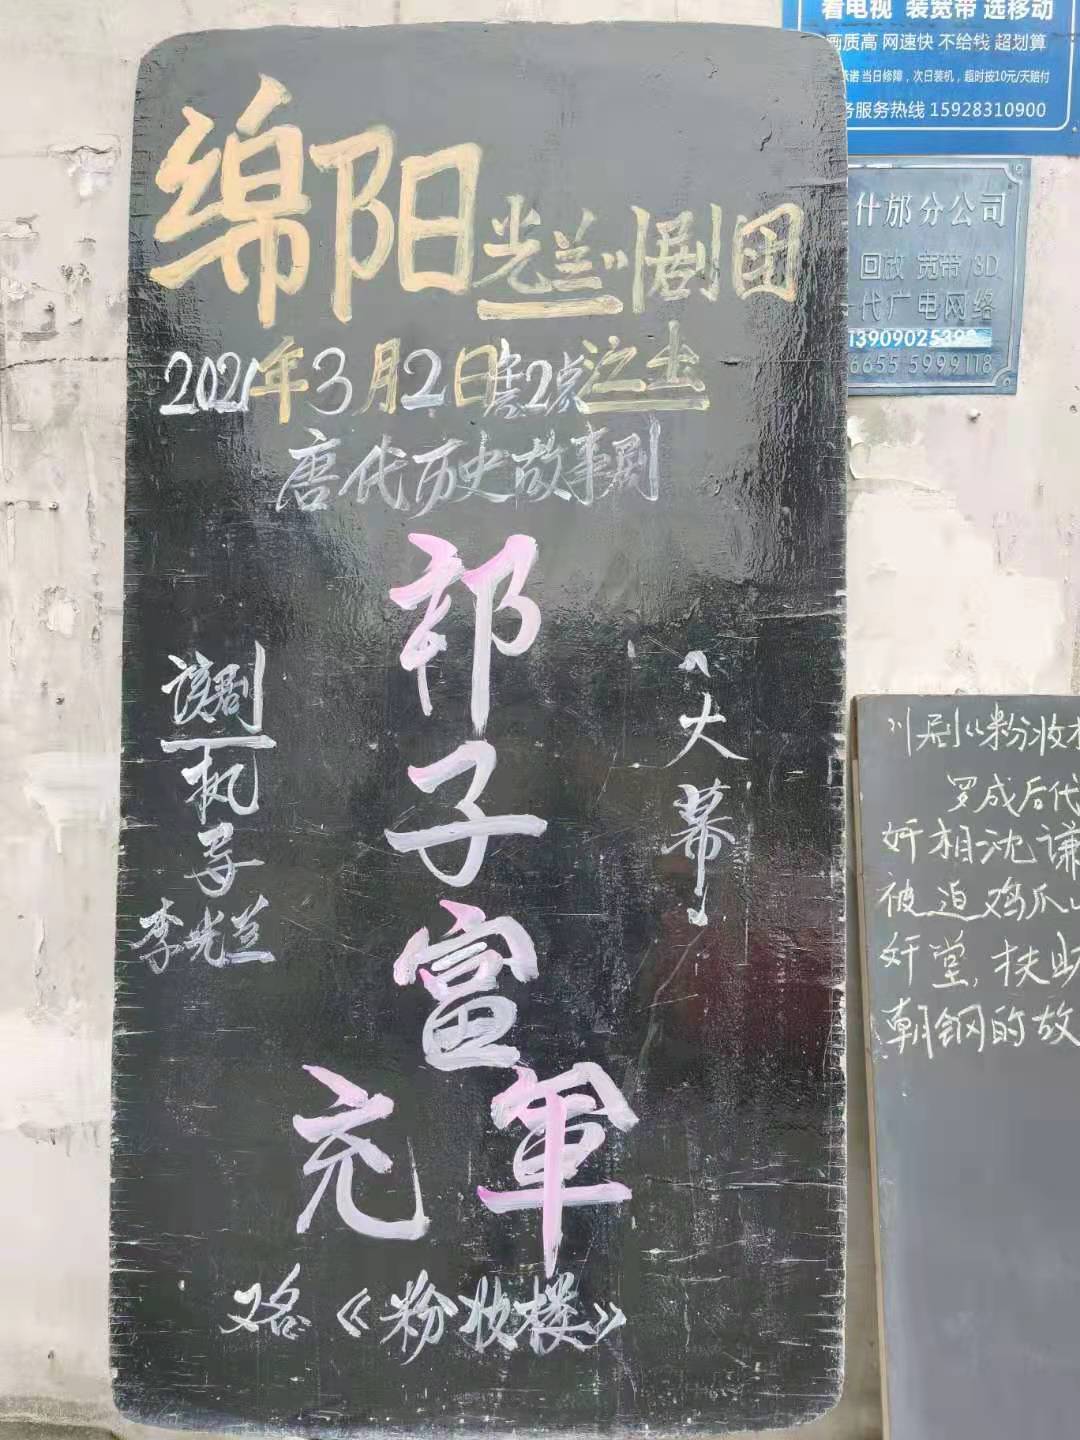 绵阳光兰川剧团
2021年3月2日 2点之土
唐代历史故事剧
祁子富
充军
（大幕）
该剧一执手
李光兰
又名《粉妆楼》
看电视 装宽带 选移动
画质高 网速快 不给钱 超划算
承诺 当日修障，次日装机，超时按10元/天赔付
务服务热线 15928310900
什邡分公司
回放 宽带 3D
一代广电网络
6655 5999118
川剧《粉妆
罗成后代
奸相沈谦
被迫鸡爪
奸堂，扶
朝钢的故